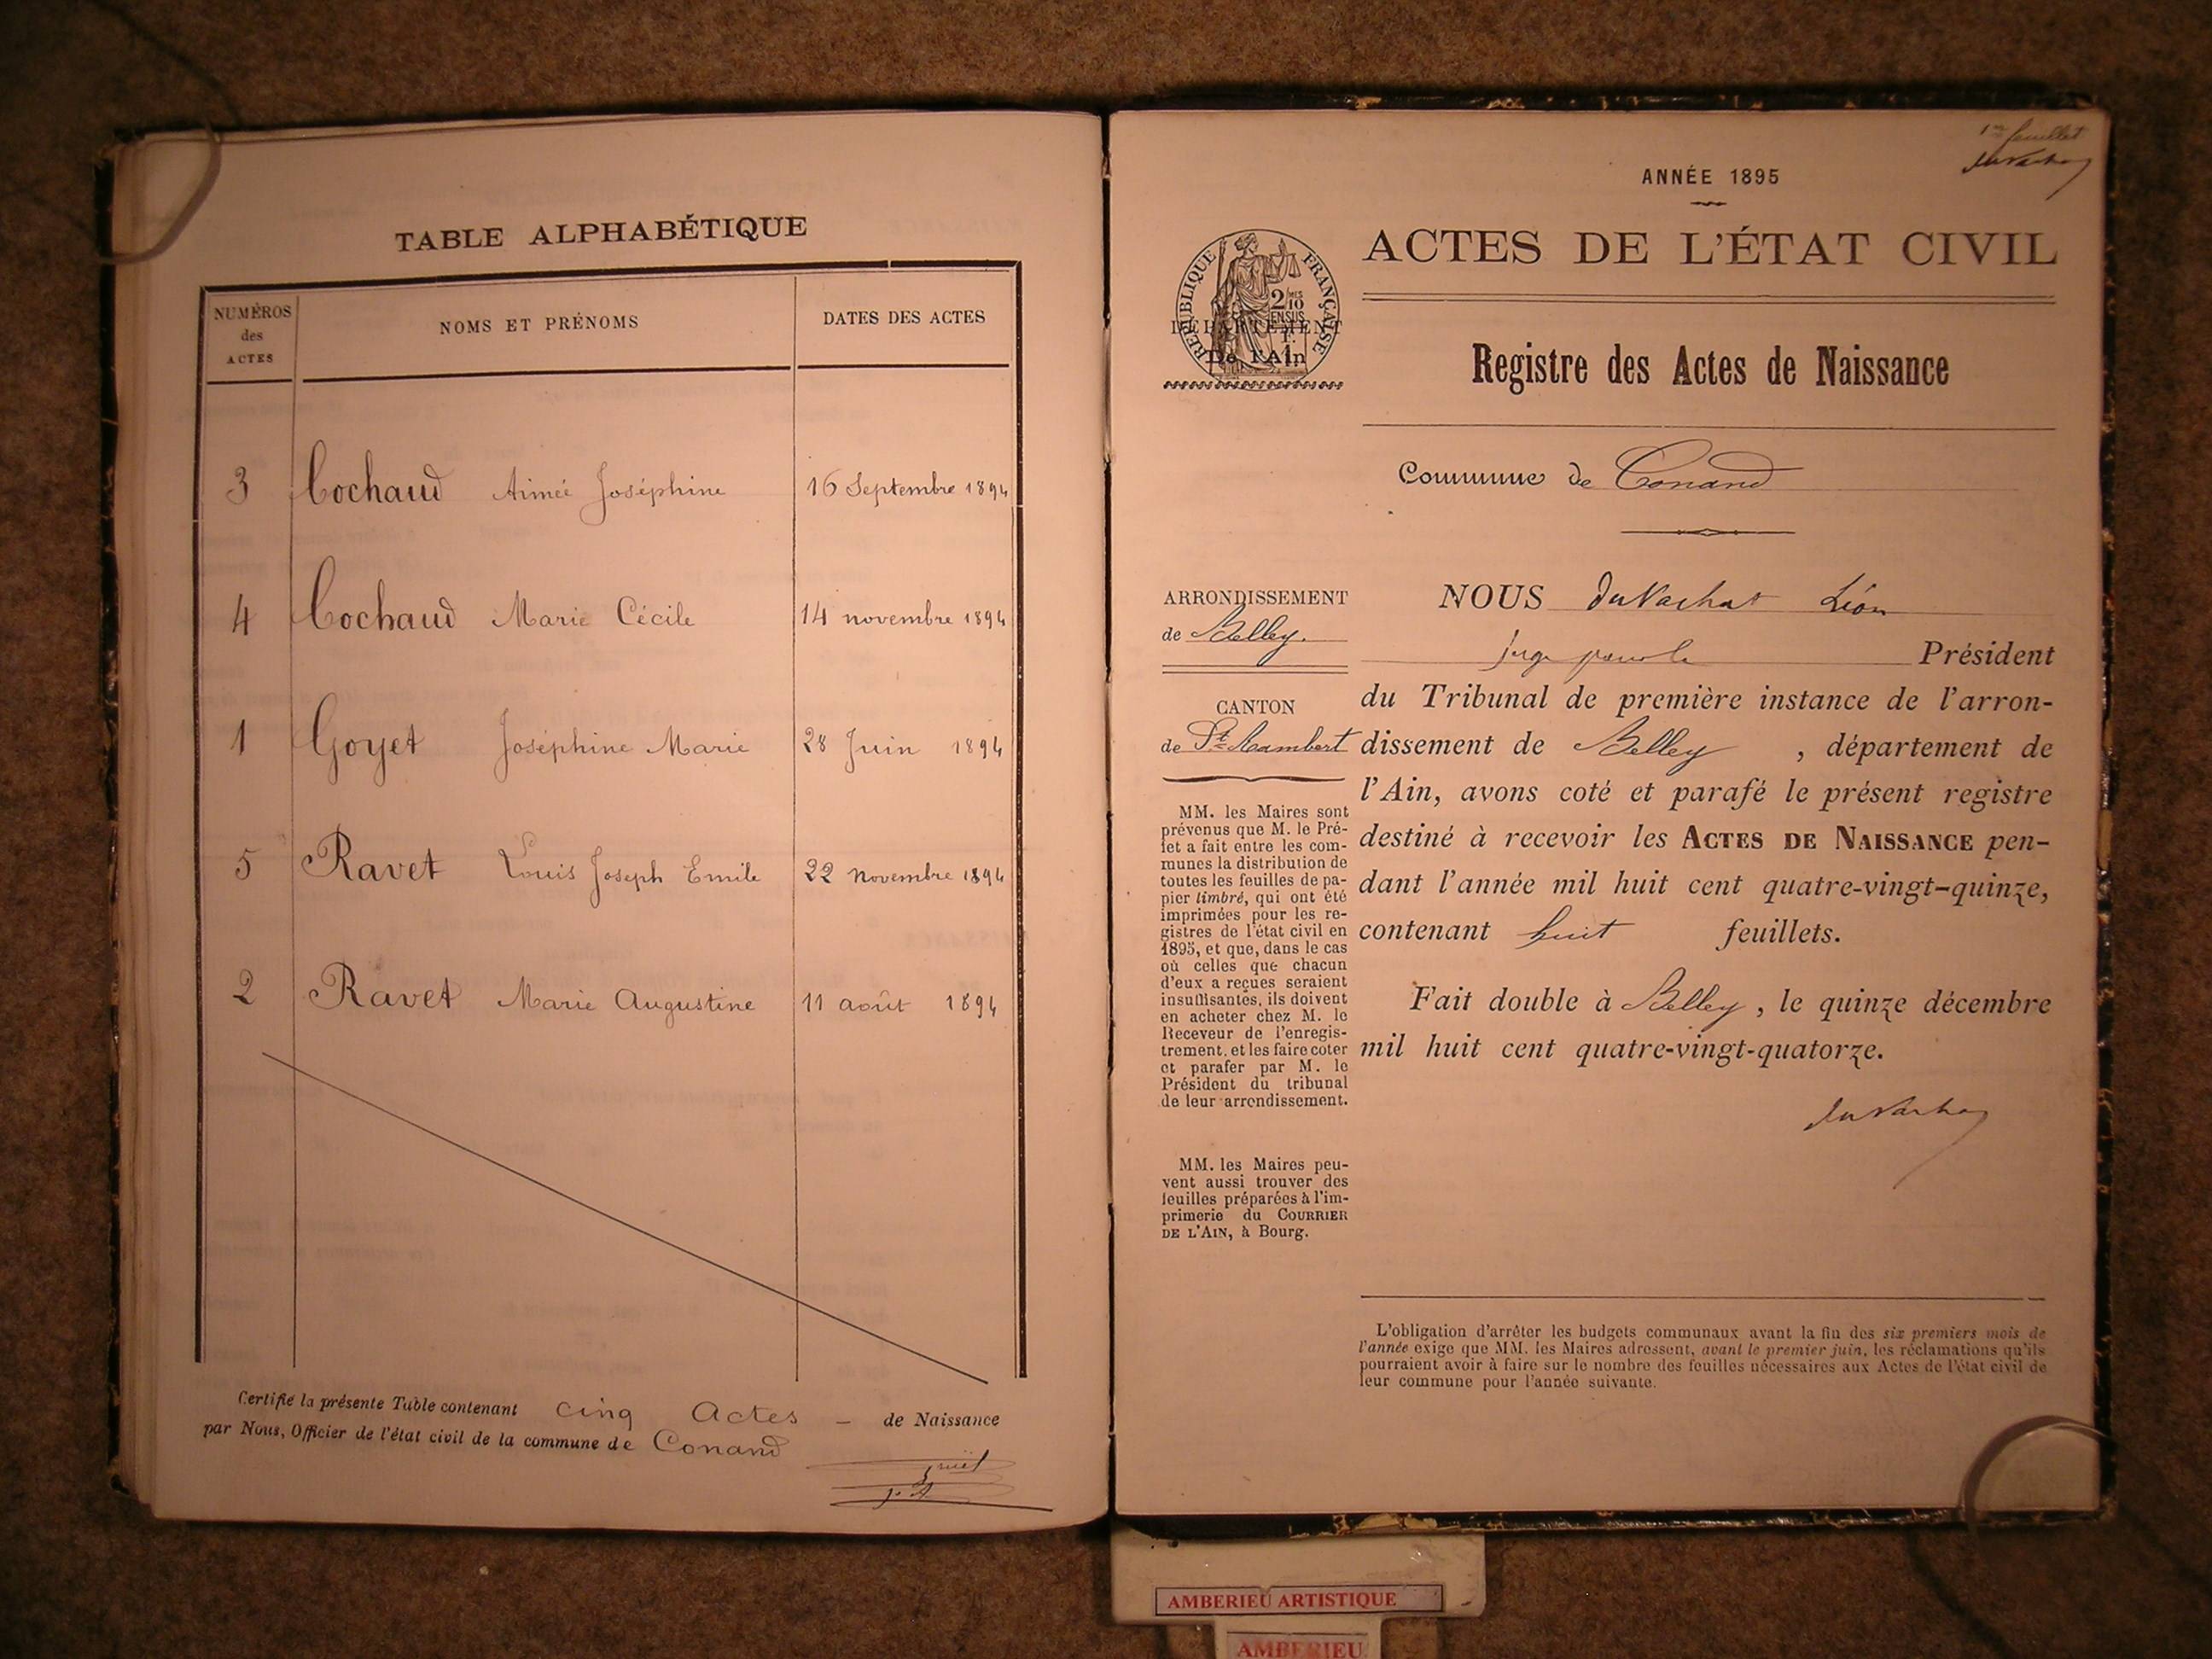 TABLE ALPHABÉTIQUE
NUMÉROS des ACTES NOMS ET PRÉNOMS DATES DES ACTES
3 Cochaud Aimée Joséphine 16 Septembre 1894
4 Cochaud Marie Cécile 14 novembre 1894
1 Goyet Joséphine Marie 28 Juin 1894
5 Ravet Louis Joseph Emile 22 novembre 1894
2 Ravet Marie Augustine 11 août 1894
Certifié la présente Table contenant cinq Actes – de Naissance
par Nous, Officier de l'état civil de la commune de Conand
1er feuillet
ANNÉE 1895
ACTES DE L'ÉTAT CIVIL
RÉPUBLIQUE FRANÇAISE
2/10 MES
EN SUS
DÉPARTEMENT
De l'Ain
Registre des Actes de Naissance
Commune de Conand
ARRONDISSEMENT
de Belley.
CANTON
de St Rambert
MM. les Maires sont
prévenus que M. le Pré-
fet a fait entre les com-
munes la distribution de
toutes les feuilles de pa-
pier timbré, qui ont été
imprimées pour les re-
gistres de l'état civil en
1895, et que, dans le cas
où celles que chacun
d'eux a reçues seraient
insuffisantes, ils doivent
en acheter chez M. le
Receveur de l'enregis-
trement, et les faire coter
et parafer par M. le
Président du tribunal
de leur arrondissement.
MM. les Maires peu-
vent aussi trouver des
feuilles préparées à l'im-
primerie du COURRIER
DE L'AIN, à Bourg.
NOUS duVachat Léon
juge pour le Président
du Tribunal de première instance de l'arron-
dissement de Belley , département de
l'Ain, avons coté et parafé le présent registre
destiné à recevoir les ACTES DE NAISSANCE pen-
dant l'année mil huit cent quatre-vingt-quinze,
contenant huit feuillets.
Fait double à Belley, le quinze décembre
mil huit cent quatre-vingt-quatorze.
duVachat
L'obligation d'arrêter les budgets communaux avant la fin des six premiers mois de
l'année exige que MM. les Maires adressent, avant le premier juin, les réclamations qu'ils
pourraient avoir à faire sur le nombre des feuilles nécessaires aux Actes de l'état civil de
leur commune pour l'année suivante.
AMBERIEU ARTISTIQUE
AMBERIEU